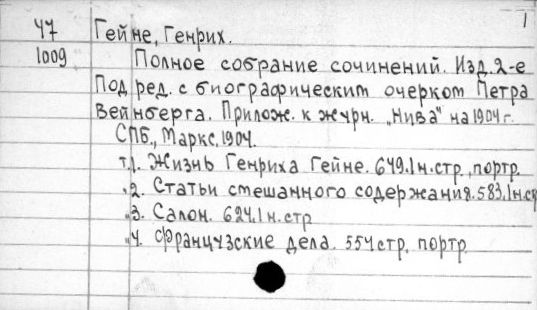 1
47 Гейне, Генрих.
1009 Полное собрание сочинений. Изд. 2-е
Под ред. с биографическим очерком Петра
Вейнберга. Прилож. к журн. „Нива" на 1904 г.
СПБ., Маркс, 1904.
т.1. Жизнь Генриха Гейне. 649.1н.стр., портр.
„2. Статьи смешанного содержания. 583.1н.ст
„3. Салон. 624.1н.стр
„4. Французские дела. 554 стр. портр.